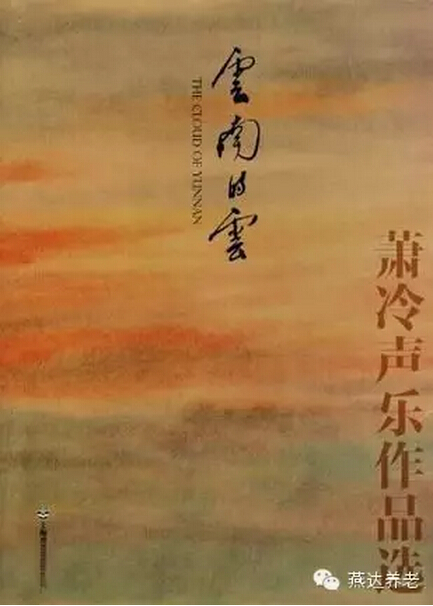 雲南的雲
THE CLOUD OF YUNNAN
萧冷声乐作品选
燕达养老